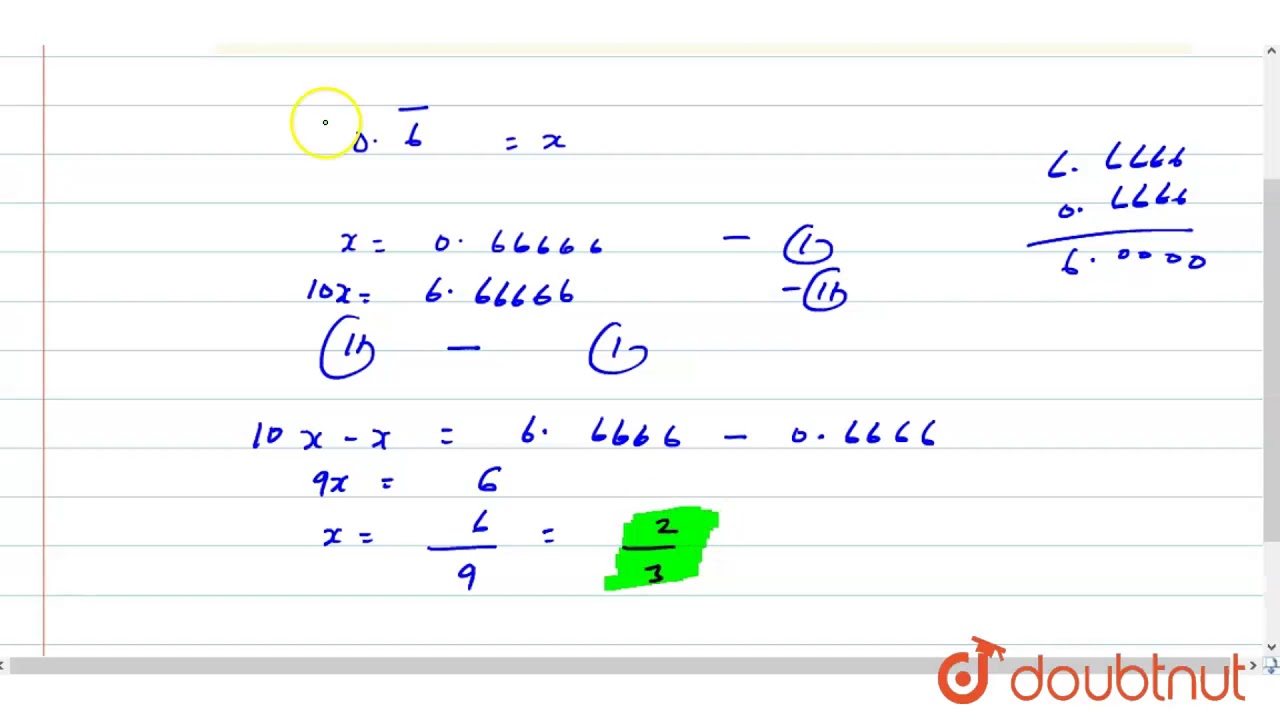 0.6̅ = x
6.6666
0.6666
6.0000
x = 0.66666 — (1)
10x = 6.66666 — (11)
(11) — (1)
10x - x = 6.6666 - 0.6666
9x = 6
x = 6/9 = 2/3
doubtnut